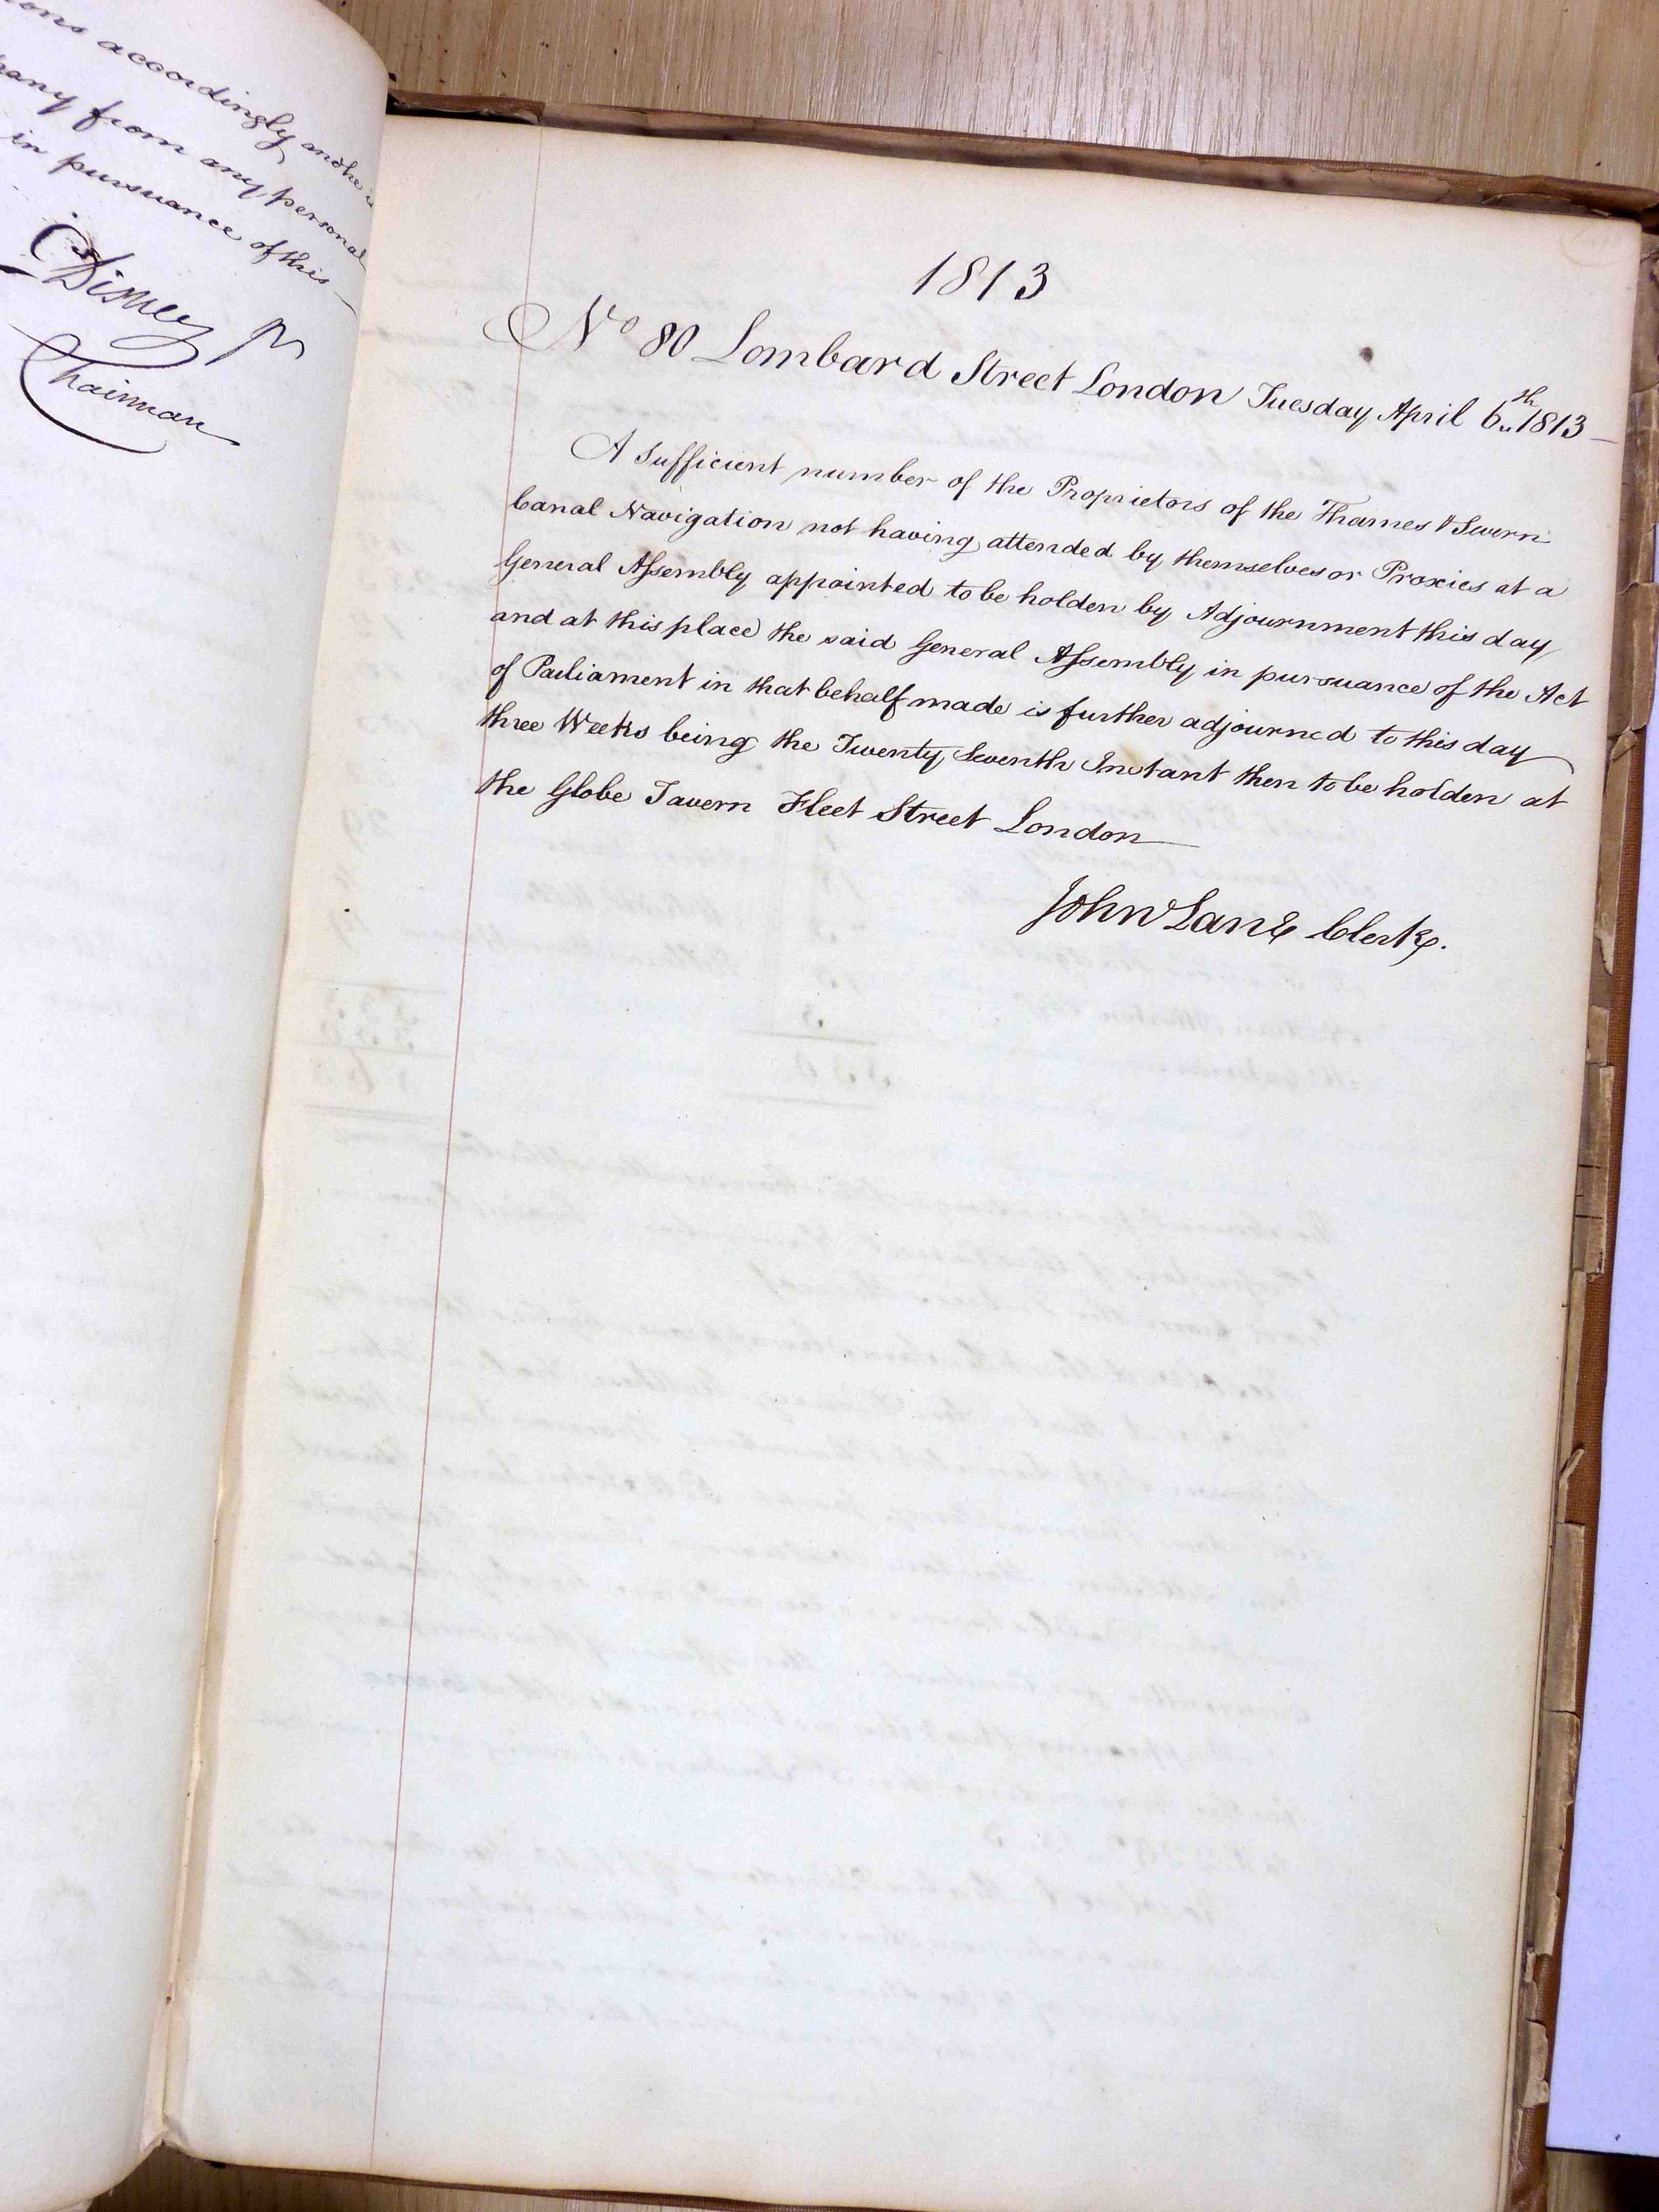 ons accordingly and he is
pany from any personal
in pursuance of this
Disney
Chairman
1813
No 80 Lombard Street London Tuesday April 6th 1813
A Sufficient number of the Proprietors of the Thames & Severn
Canal Navigation not having attended by themselves or Proxies at a
General Assembly appointed to be holden by Adjournment this day
and at this place the said General Assembly in pursuance of the Act
of Parliament in that behalf made is further adjourned to this day
three Weeks being the Twenty Seventh Instant then to be holden at
the Globe Tavern Fleet Street London
John Lane Clerk.